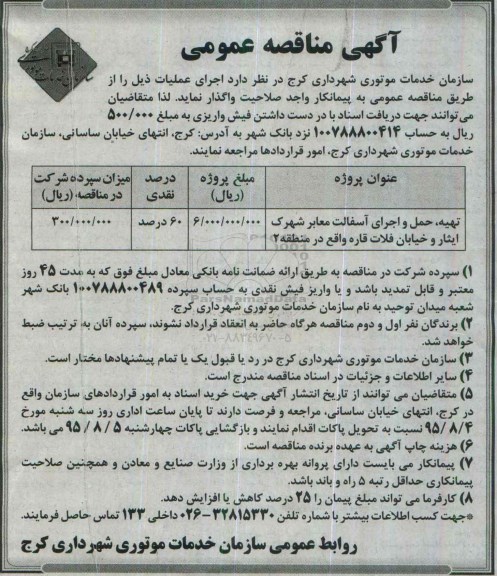 آگهی مناقصه عمومی
سازمان خدمات موتوری شهرداری کرج در نظر دارد اجرای عملیات ذیل را از
طریق مناقصه عمومی به پیمانکار واجد صلاحیت واگذار نماید. لذا متقاضیان
می‌توانند جهت دریافت اسناد با در دست داشتن فیش واریزی به مبلغ ۵۰۰/۰۰۰
ریال به حساب ۱۰۰۷۸۸۸۰۰۴۱۴ نزد بانک شهر به آدرس: کرج، انتهای خیابان ساسانی، سازمان
خدمات موتوری شهرداری کرج، امور قراردادها مراجعه نمایند.
عنوان پروژه
مبلغ پروژه (ریال)
درصد نقدی
میزان سپرده شرکت در مناقصه (ریال)
تهیه، حمل و اجرای آسفالت معابر شهرک
ایثار و خیابان فلات قاره واقع در منطقه۲
۶/۰۰۰/۰۰۰/۰۰۰
۶۰ درصد
۳۰۰/۰۰۰/۰۰۰
۱) سپرده شرکت در مناقصه به طریق ارائه ضمانت نامه بانکی معادل مبلغ فوق که به مدت ۴۵ روز
معتبر و قابل تمدید باشد و یا واریز فیش نقدی به حساب سپرده ۱۰۰۷۸۸۸۰۰۴۸۹ بانک شهر
شعبه میدان توحید به نام سازمان خدمات موتوری شهرداری کرج.
۲) برندگان نفر اول و دوم مناقصه هرگاه حاضر به انعقاد قرارداد نشوند، سپرده آنان به ترتیب ضبط
خواهد شد.
۳) سازمان خدمات موتوری شهرداری کرج در رد یا قبول یک یا تمام پیشنهادها مختار است.
۴) سایر اطلاعات و جزئیات در اسناد مناقصه مندرج است.
۵) متقاضیان می توانند از تاریخ انتشار آگهی جهت خرید اسناد به امور قراردادهای سازمان واقع
در کرج، انتهای خیابان ساسانی، مراجعه و فرصت دارند تا پایان ساعت اداری روز سه شنبه مورخ
۹۵/۸/۴ نسبت به تحویل پاکات اقدام نمایند و بازگشایی پاکات چهارشنبه ۹۵/۸/۵ می باشد.
۶) هزینه چاپ آگهی به عهده برنده مناقصه است.
۷) پیمانکار می بایست دارای پروانه بهره برداری از وزارت صنایع و معادن و همچنین صلاحیت
پیمانکاری حداقل رتبه ۵ راه و باند باشد.
۸) کارفرما می تواند مبلغ پیمان را ۲۵ درصد کاهش یا افزایش دهد.
*جهت کسب اطلاعات بیشتر با شماره تلفن ۳۲۸۱۵۳۳۰-۰۲۶ داخلی ۱۳۳ تماس حاصل فرمایند.
روابط عمومی سازمان خدمات موتوری شهرداری کرج